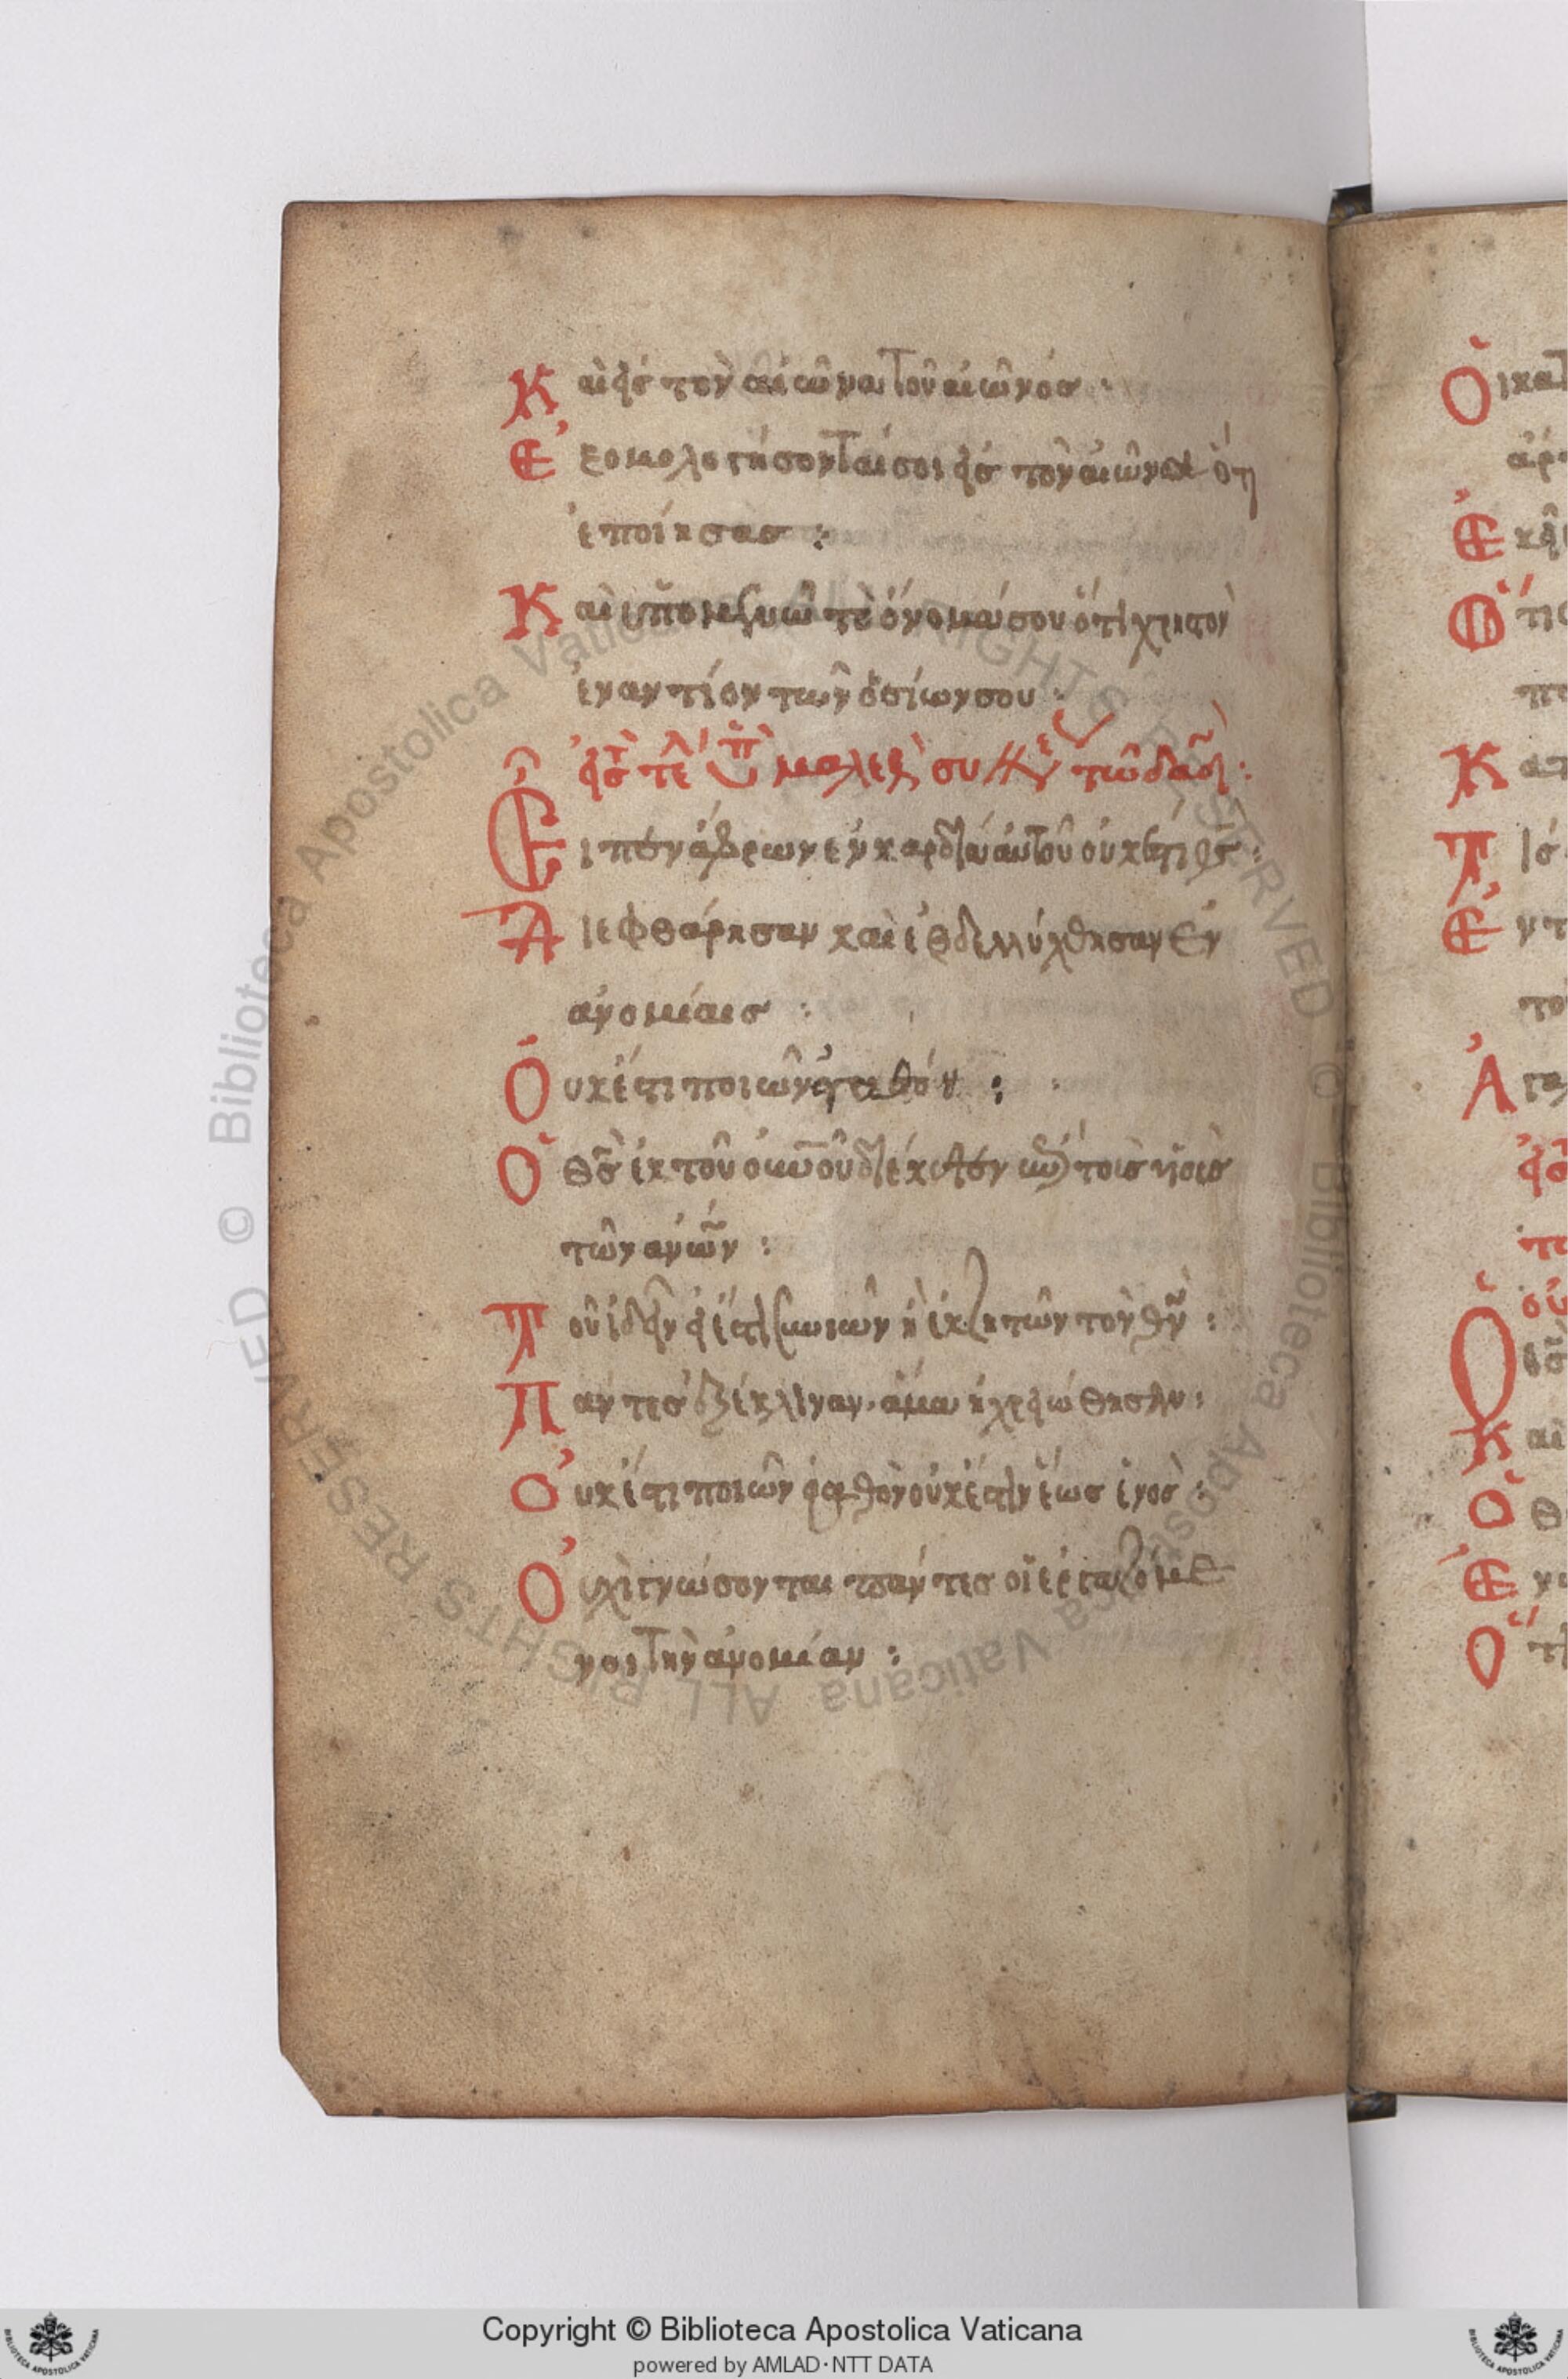 Καὶ εἰς τὸν αἰῶνα τοῦ αἰῶνος :
Ἐξομολογήσονταί σοι εἰς τὸν αἰῶνα ὅτι
ἐποίησας :
Καὶ ὑπομενῶ τὸ ὄνομά σου ὅτι χρηστὸν
ἐναντίον τῶν ὁσίων σου :
εἰς τὸ τέ τῷ δαδ :
Εἶπεν ἄφρων ἐν καρδίᾳ αὐτοῦ οὐκ ἔστι θς :
Διεφθάρησαν καὶ ἐβδελύχθησαν ἐν
ἀνομίαις :
Οὐκ ἔστι ποιῶν ἀγαθόν :
Ὁ θς ἐκ τοῦ οὐνοῦ διέκυψεν ἐπὶ τοὺς υἱοὺς
τῶν ανων :
Τοῦ ἰδεῖν εἰ ἔστι συνιῶν ἢ ἐκζητῶν τὸν θν :
Πάντες ἐξέκλιναν· ἅμα ἠχρειώθησαν :
Οὐκ ἔστι ποιῶν ἀγαθὸν οὐκ ἔστιν ἕως ἑνός :
Οὐχὶ γνώσονται πάντες οἱ ἐργαζόμε
νοι τὴν ἀνομίαν :
Copyright © Biblioteca Apostolica Vaticana
powered by AMLAD·NTT DATA